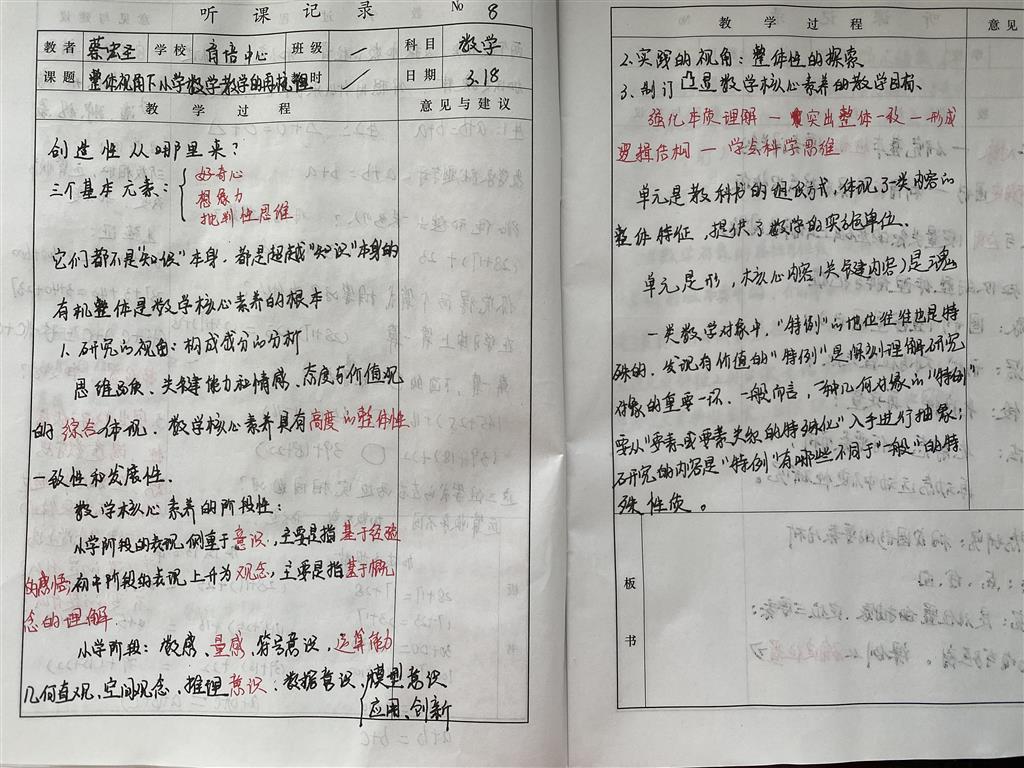 听课记录 No 8
教者 蔡宏圣 学校 育培中心 班级 / 科目 数学
课题 整体视角下小学数学教学的再梳理 课时 / 日期 3.18
教学过程 意见与建议
创造性从哪里来?
三个基本元素:{好奇心
想象力
批判性思维
它们都不是"知识"本身,都是超越"知识"本身的
有机整体是数学核心素养的根本
1.研究的视角:构成成分的分析
思维品质、关键能力和情感、态度与价值观
的综合体现.数学核心素养具有高度的整体性
一致性和发展性.
数学核心素养的阶段性:
小学阶段的表现侧重于意识,主要是指基于经验
的感悟,初中阶段的表现上升为观念,主要是指基于概
念的理解
小学阶段:数感、量感、符号意识、运算能力
几何直观、空间观念、推理意识、数据意识、模型意识
应用、创新
教学过程 意见
2.实践的视角:整体性的探索
3.制订凸显数学核心素养的教学目标、
强化本质理解—突出整体一致—形成
逻辑结构—学会科学思维
单元是教科书的组织方式,体现了类内容的
整体特征,提供了数学的实施单位、
单元是形,核心内容(关键内容)是魂
一类数学对象中,"特例"的地位往往也是特
殊的.发现有价值的"特例"是深刻理解研究
对象的重要一环.一般而言,一种几何对象的"特例"
要从"要素或要素关系的特殊化"入手进行抽象;
研究的内容是"特例"有哪些不同于"一般"的特
殊性质。
板
书